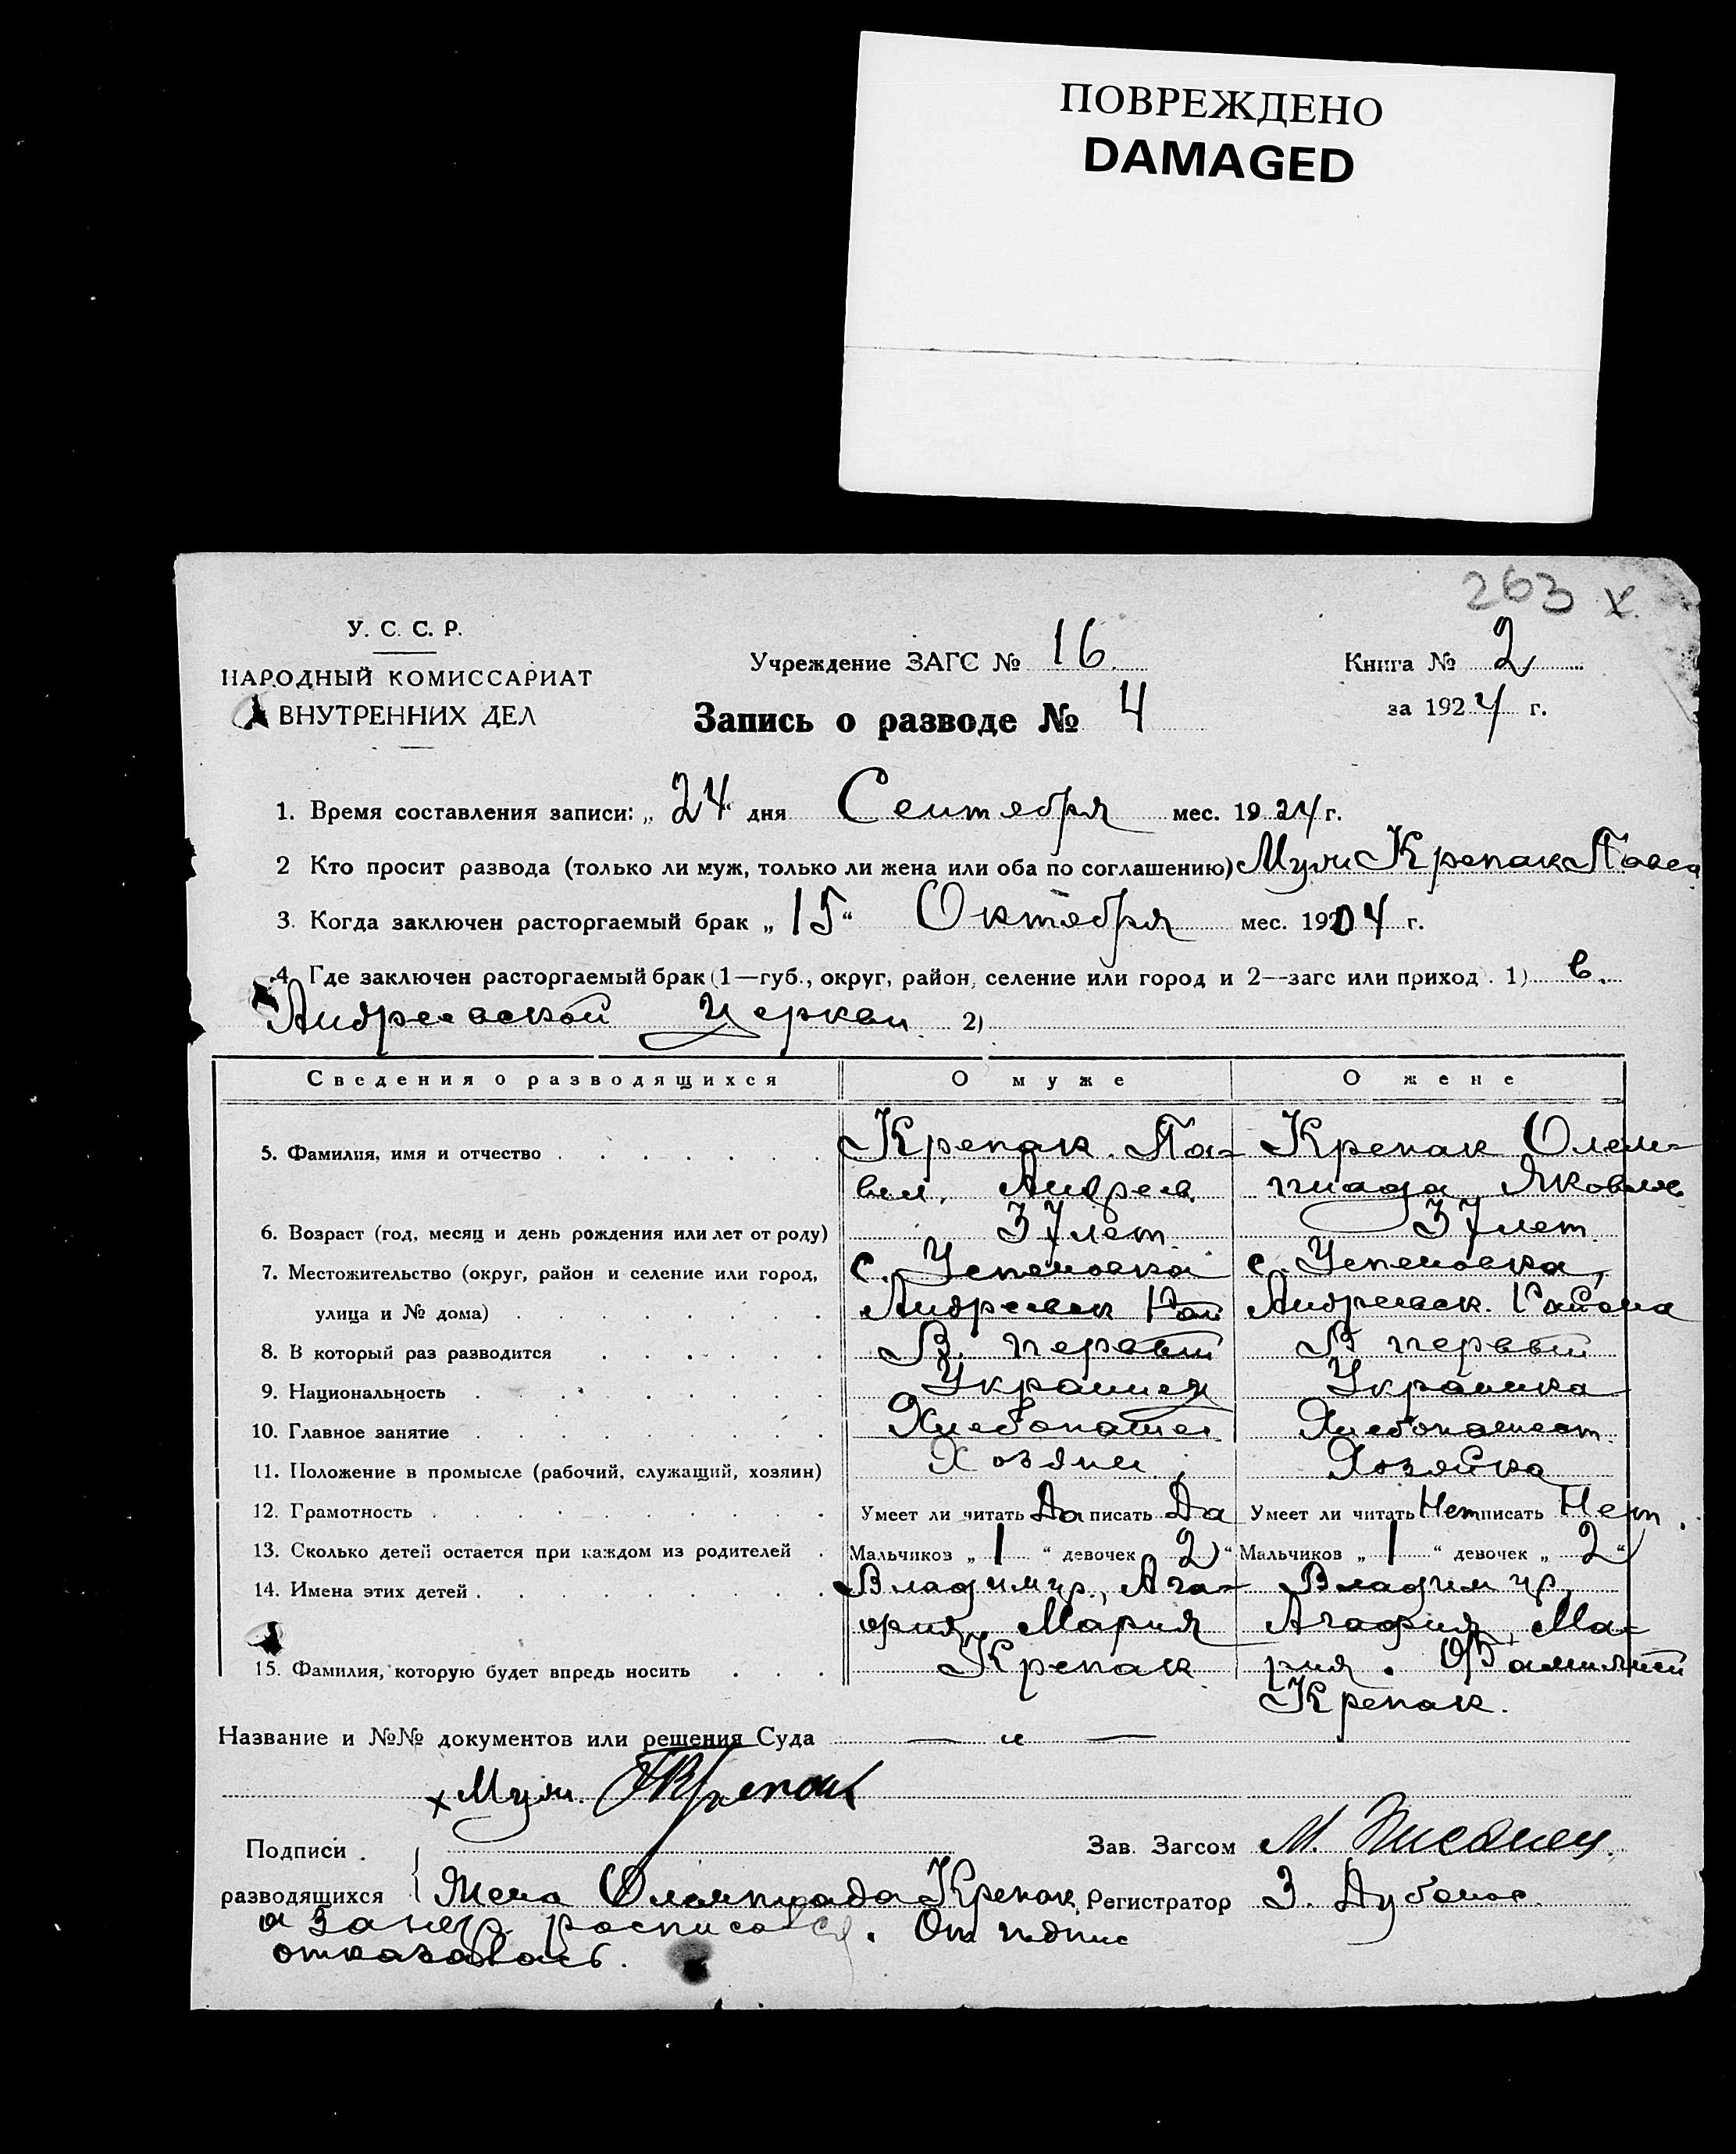 ПОВРЕЖДЕНО
DAMAGED
263 х
У. С. С. Р.
НАРОДНЫЙ КОМИССАРИАТ
ВНУТРЕННИХ ДЕЛ
Учреждение ЗАГС № 16
Запись о разводе № 4
Книга № 2
за 1924 г.
1. Время составления записи: „ 24 “ дня Сентября мес. 1924 г.
2 Кто просит развода (только ли муж, только ли жена или оба по соглашению) Муж Крепак Павел
3. Когда заключен расторгаемый брак „ 15 “ Октября мес. 1904 г.
4 Где заключен расторгаемый брак (1—губ., округ, район, селение или город и 2—загс или приход). 1) в.
Андреевской церкви 2)
Сведения о разводящихся О муже О жене
5. Фамилия, имя и отчество Крепак Па- Крепак Олем-
вел. Андреев. пиада Яковлев
6. Возраст (год, месяц и день рождения или лет от роду) 37 лет. 37 лет.
7. Местожительство (округ, район и селение или город, с. Успеновка с. Успеновка,
улица и № дома) Андреевск Рай Андреевск. Района
8. В который раз разводится В. первый В первый
9. Национальность Украинец Украинка
10. Главное занятие Хлебопашец Хлебопашест.
11. Положение в промысле (рабочий, служащий, хозяин) Хозяин Хозяйка
12. Грамотность Умеет ли читать Да писать Да Умеет ли читать Нет писать Нет.
13. Сколько детей остается при каждом из родителей Мальчиков „ 1 “ девочек 2 “ Мальчиков „ 1 “ девочек „ 2 “
14. Имена этих детей Владимир, Ага- Владимир,
фия, Мария Агафия, Ма-
15. Фамилия, которую будет впредь носить Крепак рия. Фамилией
Крепак.
Название и №№ документов или решения Суда — и —
х Муж. Крепак
Подписи Зав. Загсом М.
разводящихся Жена Олемпиада Крепак Регистратор З.
а за нея росписался. От подпис
отказалась.